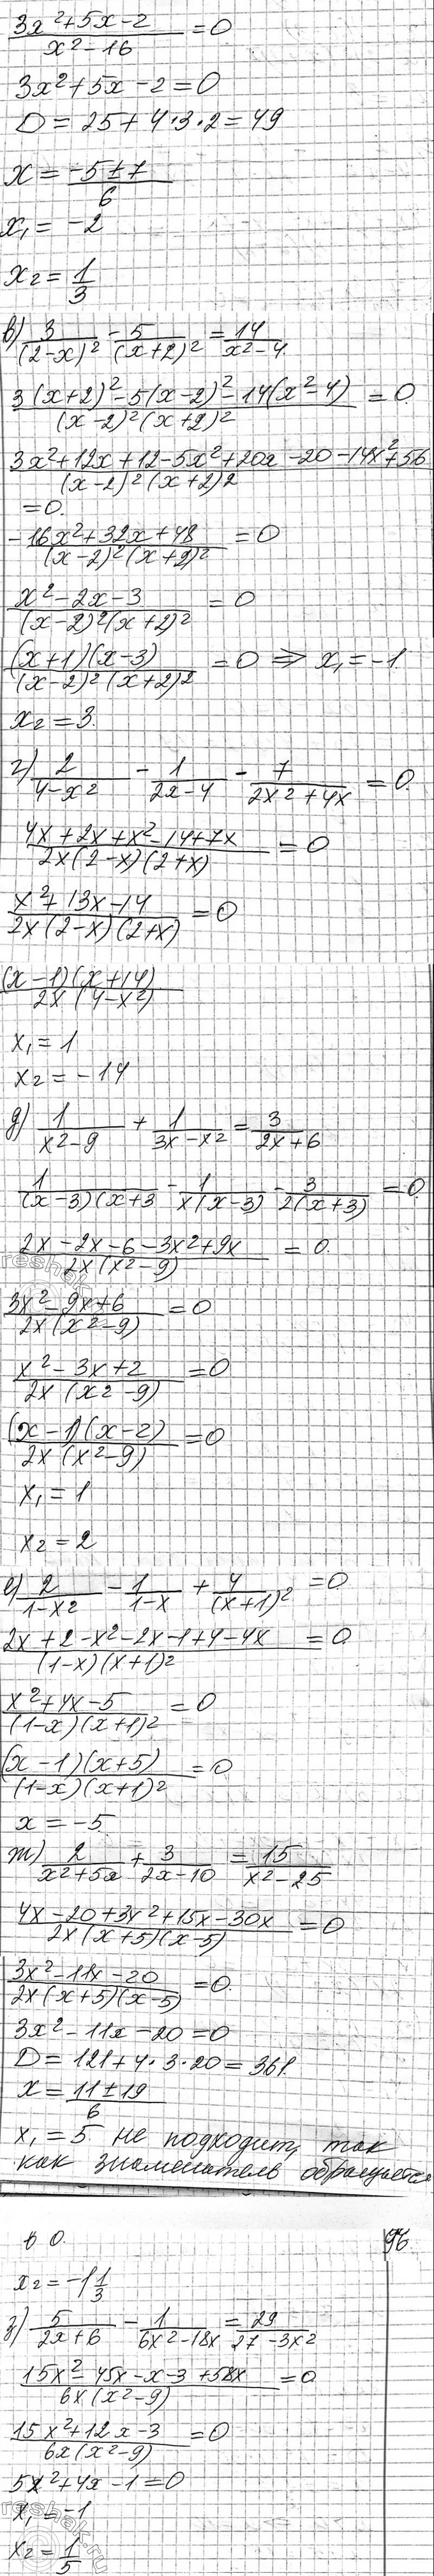 (3x²+5x−2)/(x²−16) = 0
3x²+5x−2=0
D = 25+4·3·2=49
x = (−5±7)/6
x₁ = −2
x₂ = 1/3
в) 3/(2−x)² − 5/(x+2)² = 14/(x²−4)
(3(x+2)²−5(x−2)²−14(x²−4))/((x−2)²(x+2)²) = 0
(3x²+12x+12−5x²+20x−20−14x²+56)/((x−2)²(x+2)²)
=0.
(−16x²+32x+48)/((x−2)²(x+2)²) = 0
(x²−2x−3)/((x−2)²(x+2)²) = 0
((x+1)(x−3))/((x−2)²(x+2)²) = 0 ⇒ x₁=−1
x₂ = 3.
г) 2/(4−x²) − 1/(2x−4) − 7/(2x²+4x) = 0
(4x+2x+x²−14+7x)/(2x(2−x)(2+x)) = 0
(x²+13x−14)/(2x(2−x)(2+x)) = 0
((x−1)(x+14))/(2x(4−x²))
x₁ = 1
x₂ = −14
д) 1/(x²−9) + 1/(3x−x²) = 3/(2x+6)
1/((x−3)(x+3) − 1/(x(x−3)) − 3/(2(x+3)) = 0
(2x−2x−6−3x²+9x)/(2x(x²−9)) = 0.
(3x²−9x+6)/(2x(x²−9)) = 0
(x²−3x+2)/(2x(x²−9)) = 0
((x−1)(x−2))/(2x(x²−9)) = 0
x₁ = 1
x₂ = 2
е) 2/(1−x²) − 1/(1−x) + 4/(x+1)² = 0
(2x+2−x²−2x−1+4−4x)/((1−x)(x+1)²) = 0
(x²+4x−5)/((1−x)(x+1)²) = 0
((x−1)(x+5))/((1−x)(x+1)²) = 0
x = −5.
ж) 2/(x²+5x) + 3/(2x−10) = 15/(x²−25)
(4x−20+3x²+15x−30x)/(2x(x+5)(x−5)) = 0
(3x²−11x−20)/(2x(x+5)(x−5)) = 0.
3x²−11x−20=0
D = 121+4·3·20=361.
x = (11±19)/6
x₁ = 5 не подходит, так
как знаменатель обращается
в 0.
96.
x₂ = −1 1/3
з) 5/(2x+6) − 1/(6x²−18x) = 29/(27−3x²)
(15x²−45x−x−3+58x)/(6x(x²−9)) = 0
(15x²+12x−3)/(6x(x²−9)) = 0
5x²+4x−1=0
x₁ = −1
x₂ = 1/5
reshak.ru
reshak.ru